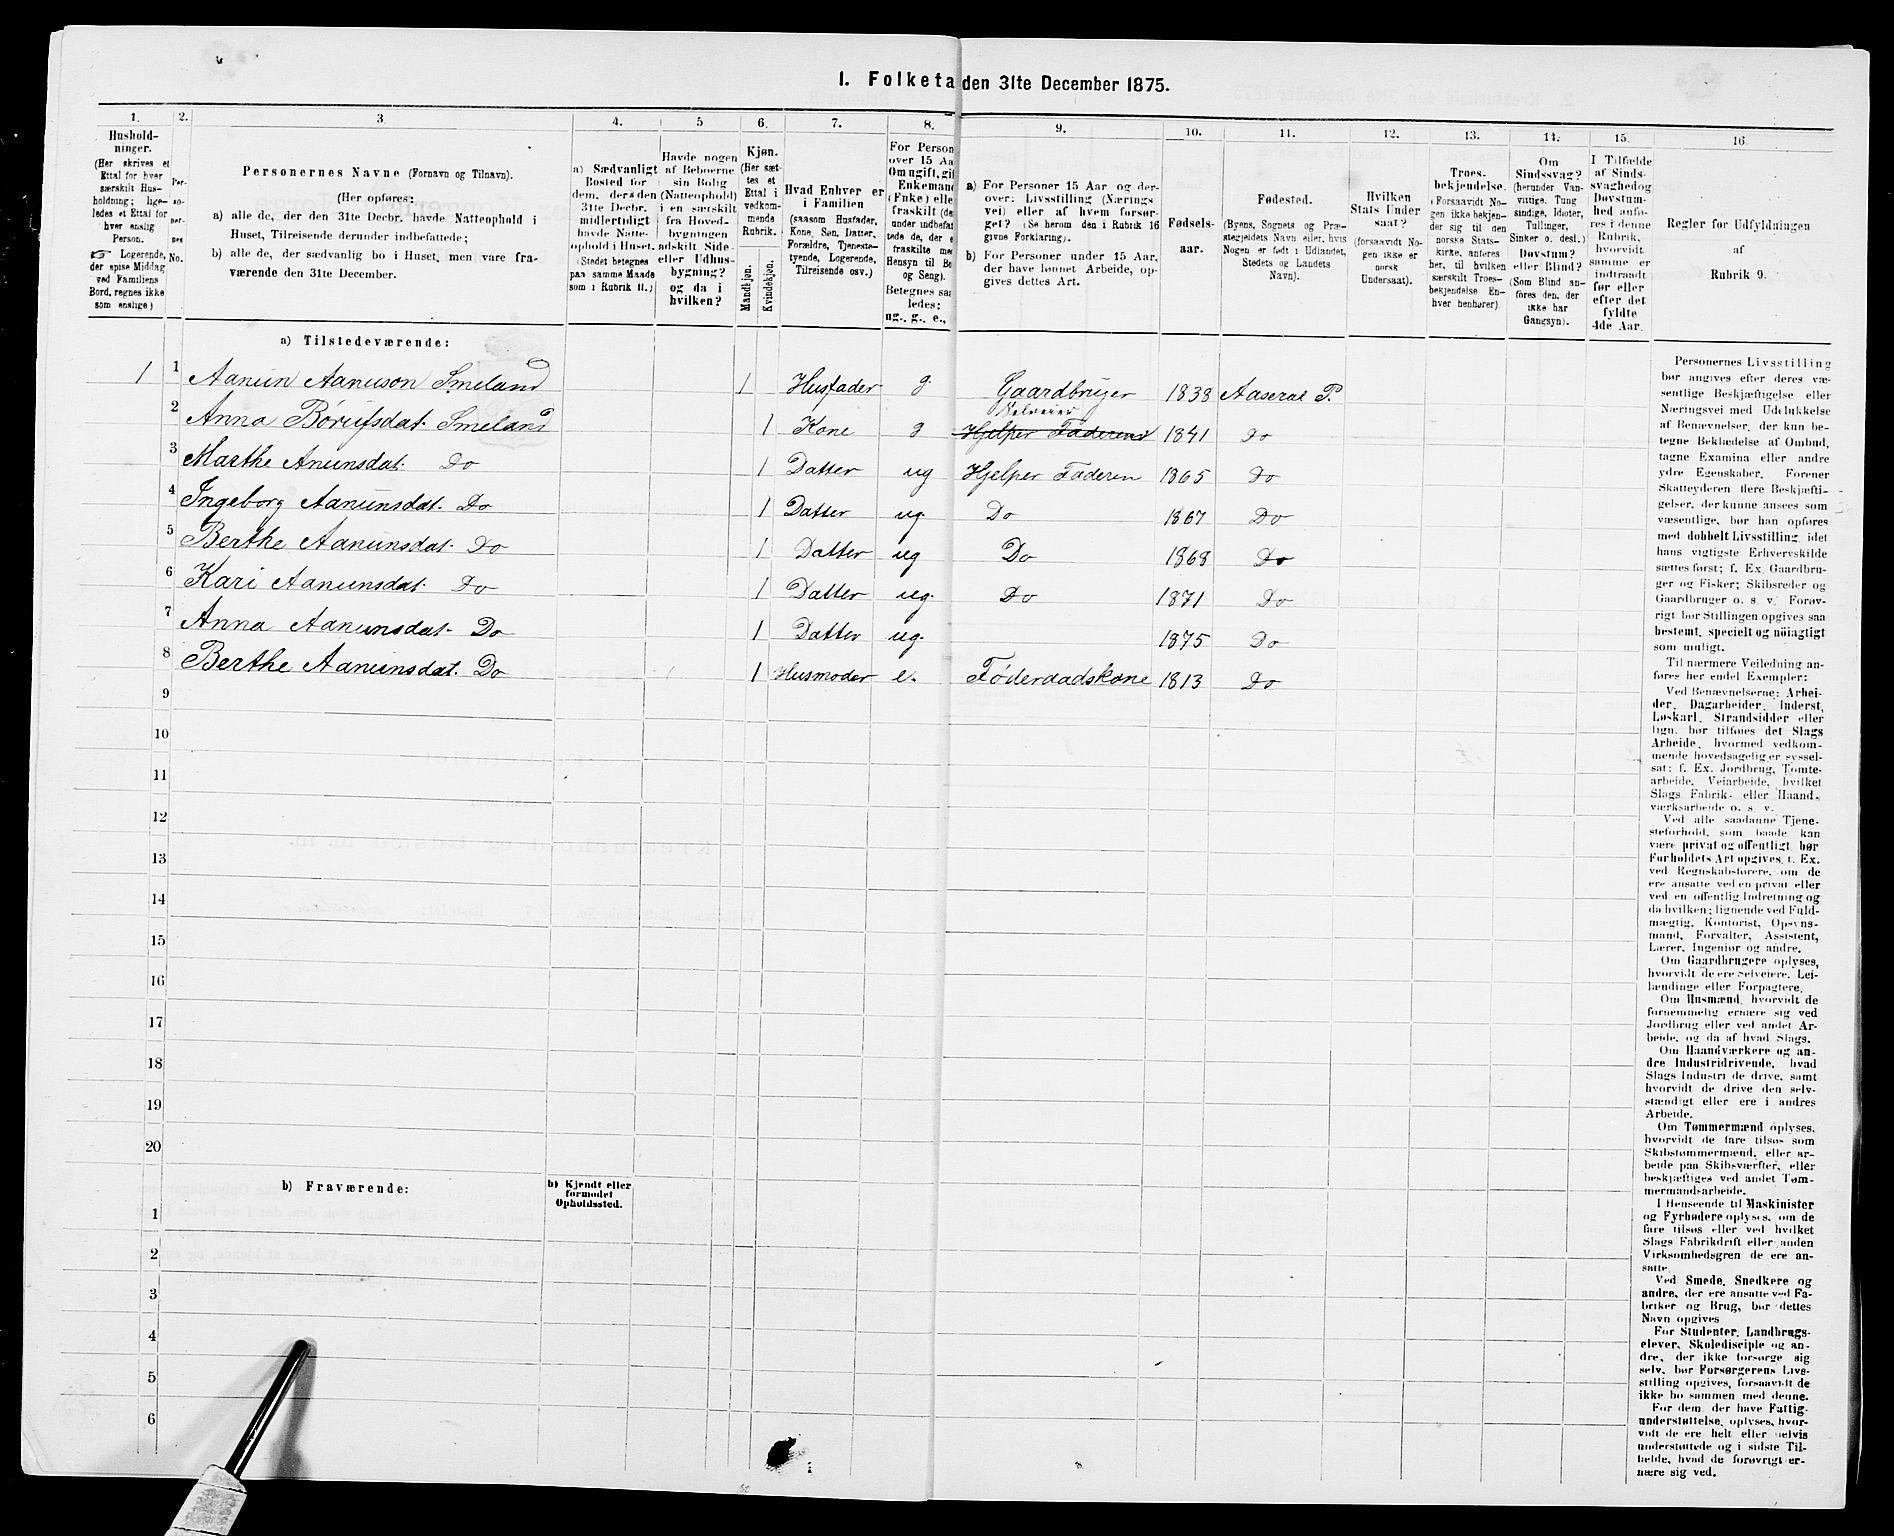 I. Folketa den 31te December 1875.
1. 2. 3. 4. 5 6. 7. 8. 9. 10. 11. 12. 13. 14. 15. 16.
Hushold-
ninger.
(Her skrives et
Ettal for hver
særskilt Hus-
holdning; lige-
ledes et Ettal for
hver enslig
Person.
☞ Logerende,
der spise Middag
ved Familiens
Bord, regnes ikke
som enslige.)
Per-
so-
ner-
nes
No.
Personernes Navne (Fornavn og Tilnavn).
(Her opføres:
a) alle de, der den 31te Decbr. havde Natteophold i
Huset, Tilreisende derunder indbefattede;
b) alle de, der sædvanlig bo i Huset, men vare fra-
værende den 31te December.
a) Sædvanligt
Bosted for
dem, der den
31te Decbr.
midlertidigt
havde Natte-
ophold i Huset.
(Stedet betegnes
paa samme Maade
som i Rubrik 11.)
Havde nogen
af Beboerne
sin Bolig
(Natteophold)
i en særskilt
fra Hoved-
bygningen
adskilt Side-
eller Udhus-
bygning?
og da i
hvilken?
Kjøn.
(Her sæt-
tes et
Ettal i
vedkom-
mende
Rubrik.
Mandkjøn.
Kvindekjøn.
Hvad Enhver er
i Familien
(saasom Husfader,
Kone, Søn, Datter,
Forældre, Tjeneste-
tyende, Logerende,
Tilreisende osv.)
For Person
over 15 Aa
Om ugift, gif
Enkemand
(Enke) elle
fraskilt (de
under indbefat
tede de, der e
fraskilte me
Hensyn til Bo
og Seng).
Betegnes saa
ledes:
ug., g., e.,
a) For Personer 15 Aar og der-
over: Livsstilling (Nærings
vei) eller af hvem forsør-
get? (Se herom den i Rubrik 16
givne Forklaring).
b) For Personer under 15 Aar,
der have lønnet Arbeide, op-
gives dettes Art.
Fødsels-
aar.
Fødested.
(Byens, Sognets og Præ-
stegjeldets Navn eller, hvis
Nogen er født i Udlandet,
Stedets og Landets
Navn).
Hvilken
Stats Under
saat?
(forsaavidt No-
gen ikke er
norsk
Undersaat).
Troes-
bekjendelse.
(Forsaavidt No-
gen ikke bekjen-
der sig til den
norske Stats-
kirke, anføres
her, til hvilken
særskilt Troes-
bekjendelse En-
hver henhører).
Om
Sindssvag?
(herunder Van-
vittige, Tung
sindige, Idioter,
Tullinger,
Sinker o. desl.)
Døvstum?
eller Blind?
(Som Blind an-
føres den, der
ikke har
Gangsyn).
I Tilfælde
af Sinds-
svaghed og
Døvstum-
hed anfø-
res i denne
Rubrik,
hvorvidt
samme er
indtraadt
før eller
efter det
fyldte
4de Aar.
Regler for Udfyldningen
af
Rubrik 9.
a) Tilstedeværende:
1 1 Aanun Aanuson Smeland 1 Husfader g. Gaardbruger 1838 Aaseral P.
Selveier
2 Anna Børufsdat. Smeland 1 Kone g Hjelper Faderens 1841 Do
3 Marthe Anunsdat. Do 1 Datter ug Hjelper Faderen 1865 Do
4 Ingeborg Aanunsdat. Do 1 Datter ug. Do 1867 Do
5 Berthe Aanunsdat. Do 1 Datter ug Do 1868 Do
6 Kari Aanunsdat. Do 1 Datter ug. Do 1871 Do
7 Anna Aanunsdat. Do 1 Datter ug. 1875 Do
8 Berthe Aanunsdat. Do 1 Husmoder e. Føderaadskone 1813 Do
9
10
11
12
13
14
15
16
17
18
19
20
b) Fraværende:
b) Kjendt eller
formodet
Opholdssted.
1
2
3
4
5
6
Personernes Livsstilling
bør angives efter deres væ-
sentlige Beskjæftigelse eller
Næringsvei med Udelukkelse
af Benævnelser, der kun be-
tegne Beklædelse af Ombud,
tagne Examina eller andre
ydre Egenskaber. Forener
Skatteyderen flere Beskjæfti-
gelser, der kunne ansees som
væsentlige, bør han opføres
med dobbelt Livsstilling, idet
hans vigtigste Erhvervskilde
sættes først; f. Ex. Gaardbru-
ger og Fisker; Skibsreder og
Gaardbruger o. s v. Forøv-
rigt bør Stillingen opgives saa
bestemt, specielt og nöiagtigt
som muligt.
Til nærmere Veiledning an-
føres her endel Exempler:
Ved Benævnelserne: Arbei-
der, Dagarbeider, Inderst,
Løskarl, Strandsidder eller
lign. bør tilføies det Slags
Arbeide, hvormed vedkom-
mende hovedsagelig er syssel-
sat; f. Ex. Jordbrug, Tomte-
arbeide, Veiarbeide, hvilket
Slags Fabrik- eller Haand-
værksarbeide o. s v.
Ved alle saadanne Tjene-
steforhold, som baade kan
være privat og offentligt, bør
Forholdets Art opgives, t. Ex.
ved Regnskabsførere, om de
ere ansatte ved en privat eller
ved en offentlig Indretning og
da hvilken; lignende ved Fuld-
mægtig, Kontorist, Opsyns-
mand, Forvalter, Assistent,
Lærer, Ingeniør og andre.
Om Gaardbrugere oplyses,
hvorvidt de ere Selveiere, Lei-
lændinge eller Forpagtere.
Om Husmænd, hvorvidt de
fornemmelig ernære sig ved
Jordbrug eller ved andet Ar-
beide, og da af hvad Slags.
Om Haandværkere og an-
dre Industridrivende, hvad
Slags Industri de drive, samt
hvorvidt de drive den selv-
stændigt eller ere i andres
Arbeide.
Om Tømmermænd oplyses,
hvorvidt de fare tilsøs som
Skibstømmermænd, eller ar-
beide paa Skibsværfter, eller
beskjæftiges ved andet Tøm-
mermandsarbeide.
I Henseende til Maskinister
og Fyrbødere oplyses, om de
fare tilsøs eller ved hvilket
Slags Fabrikdrift eller anden
Virksomhedsgren de ere an-
satte.
Ved Smede, Snedkere og
andre, der ere ansatte ved Fa-
briker og Brug, bør dettes
Navn opgives
For Studenter, Landbrugs-
elever, Skoledisciple og an-
dre, der ikke forsørge sig
selv, bør Forsørgerens Livs-
stilling opgives, forsaavidt de
ikke bo sammen med denne.
For dem, der have Fattig-
understøttelse, oplyses, hvor-
vidt de ere helt eller delvis
understøttede og i sidste Til-
fælde, hvad de forøvrigt er-
nære sig ved.